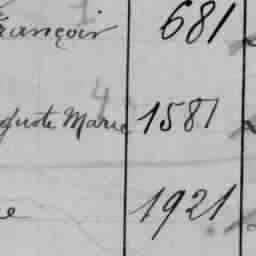 françois 681
4
guste Marie 1581
e 1921